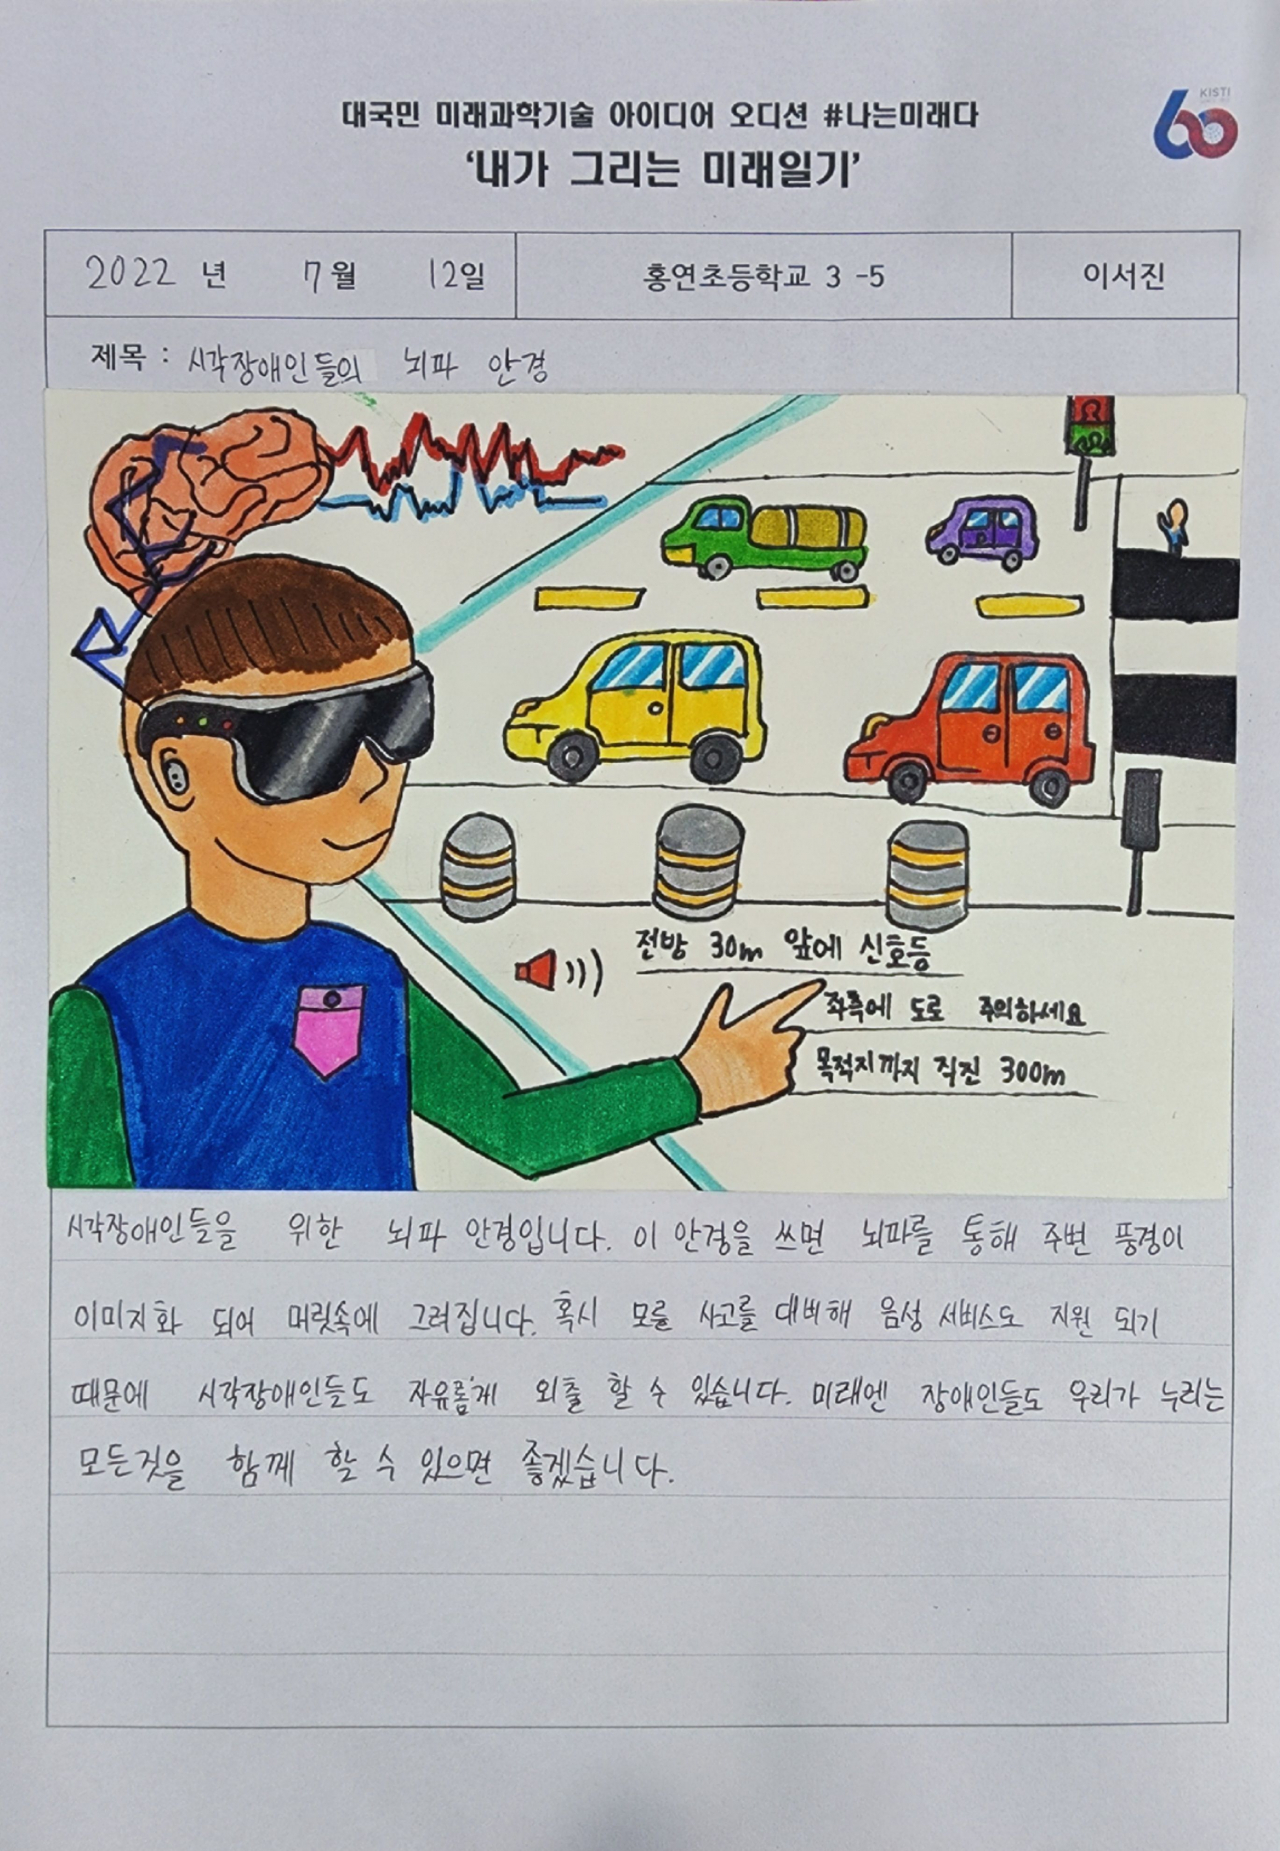 대국민 미래과학기술 아이디어 오디션 #나는미래다
KISTI
60
'내가 그리는 미래일기'
2022 년 7월 12일 홍연초등학교 3 -5 이서진
제목 : 시각장애인들의 뇌파 안경
전방 30m 앞에 신호등
좌측에 도로 주의하세요
목적지까지 직진 300m
시각장애인들을 위한 뇌파 안경입니다. 이 안경을 쓰면 뇌파를 통해 주변 풍경이
이미지화 되어 머릿속에 그려집니다. 혹시 모를 사고를 대비해 음성 서비스도 지원 되기
때문에 시각장애인들도 자유롭게 외출 할 수 있습니다. 미래엔 장애인들도 우리가 누리는
모든것을 함께 할 수 있으면 좋겠습니다.